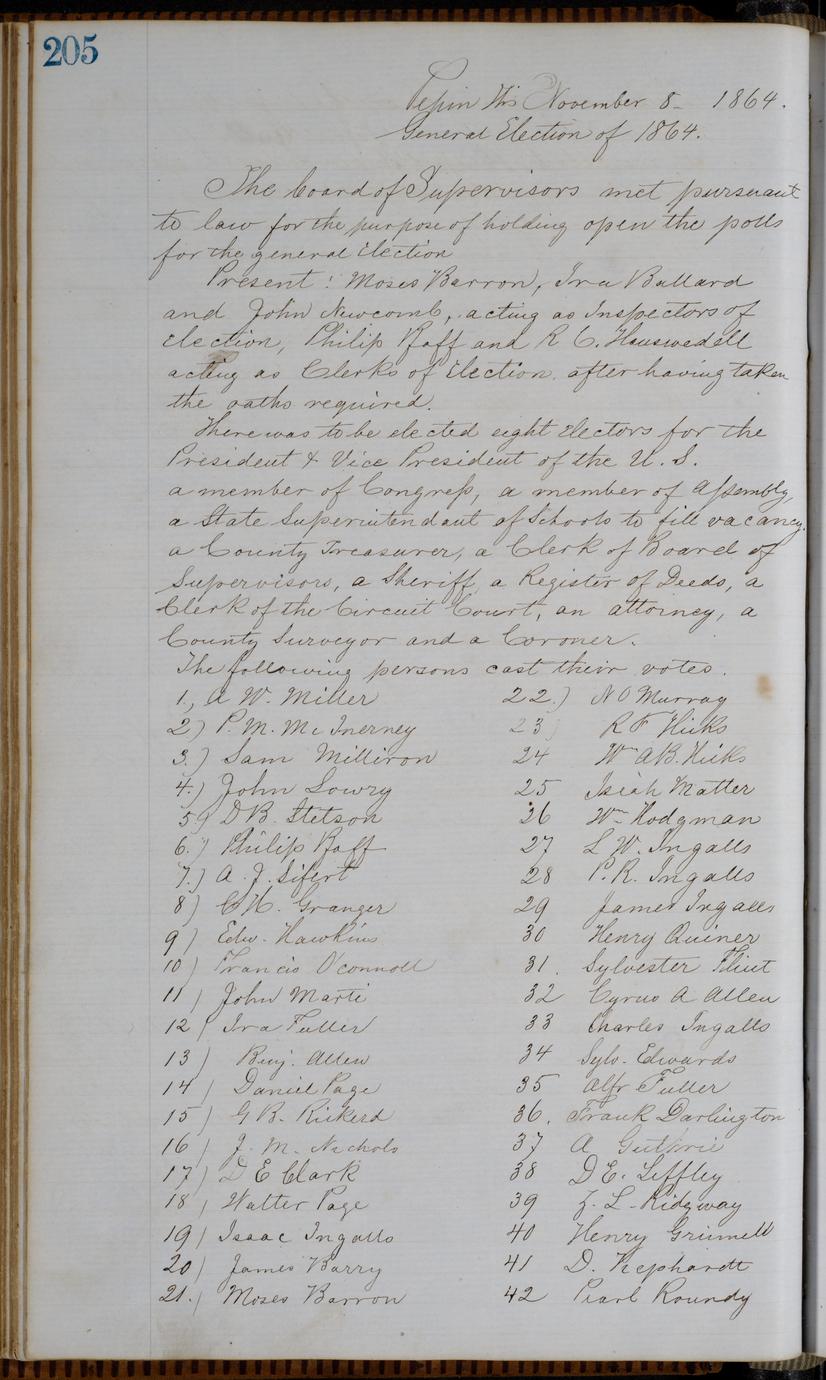 205
Pepin Wis November 8 - 1864.
General Election of 1864.
The board of Supervisors met pursuant
to law for the purpose of holding open the polls
for the general Election
Present: Moses Barron, Ira Ballard
and John Newcomb, acting as Inspectors of
election, Philip Pfaff and R C. Hauswedell
acting as Clerks of Election. after having taken
the oaths required.
There was to be elected eight Electors for the
President & Vice President of the U. S.
a member of Congress, a member of Assembly,
a State Superintendant of Schools to fill vacancy.
a County Treasurer, a Clerk of Board of
Supervisors, a Sheriff, a Register of Deeds, a
Clerk of the Circuit Court, an attorney, a
County Surveyor and a Coroner.
The following persons cast their votes.
1., A W. Miller
2) P. M. Mc Inerney
3.) Sam Milliron
4.) John Lowry
5) D B. Stetson
6.) Philip Pfaff
7.) A. J. Sifert
8) C N. Granger
9) Edw. Hawkins
10) Francis O'connell
11) John Marti
12) Ira Fuller
13) Benj. Allen
14) Daniel Page
15) G B. Rickerd
16) J. M. Nichols
17) D E Clark
18) Walter Page
19) Isaac Ingalls
20) James Barry
21.) Moses Barron
22.) N O Murray
23) R F Hicks
24 Wm A B. Hicks
25 Isiah Matter
26 Wm Hodgman
27 L W. Ingalls
28 P. R. Ingalls
29 James Ingalls
30 Henry Quiner
31. Sylvester Flint
32 Cyrus A Allen
33 Charles Ingalls
34 Sylv. Edwards
35 Alfr Fuller
36. Frank Darlington
37 A Guthrie
38 D E. Leffley
39 Z. L. Ridgway
40 Henry Grinnell
41 D. Kephardt
42 Pearl Roundy